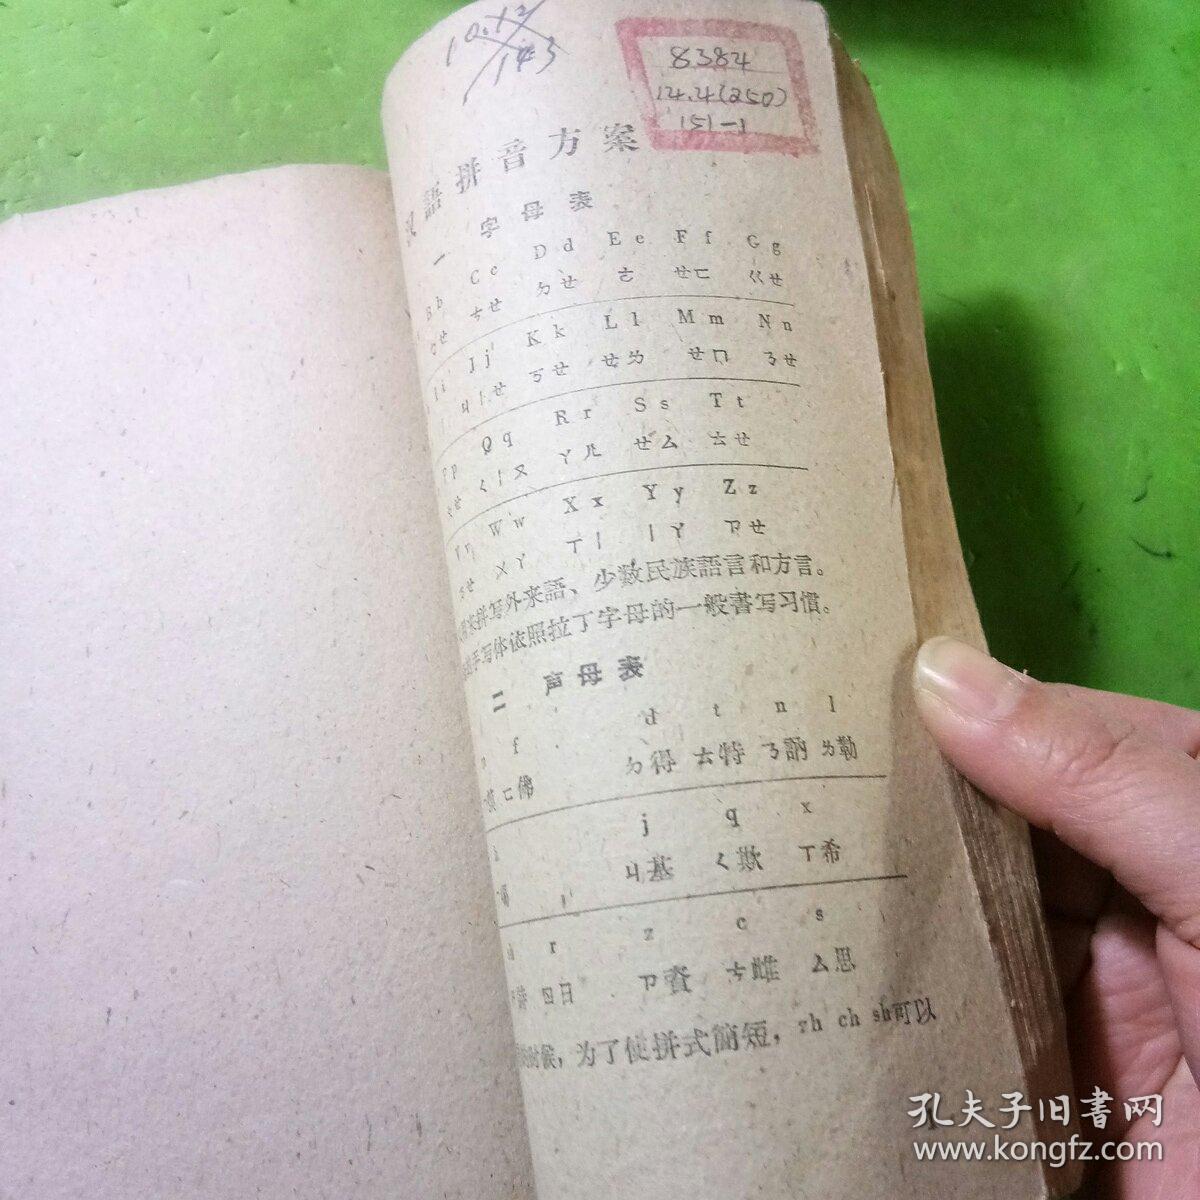 10.12
143
8384
14.4(250)
151-1
汉語拼音方案
一 字母表
B b C c D d E e F f G g
ㄅㄝ ㄘㄝ ㄉㄝ ㄜ ㄝㄈ ㄍㄝ
I i J j K k L l M m N n
ㄐㄧㄝ ㄎㄝ ㄝㄌ ㄝㄇ ㄋㄝ
P p Q q R r S s T t
ㄆㄝ ㄑㄧㄡ ㄚㄦ ㄝㄙ ㄊㄝ
V v W w X x Y y Z z
ㄪㄝ ㄨㄚ ㄒㄧ ㄧㄚ ㄗㄝ
用来拼写外来語、少数民族語言和方言。
手写体依照拉丁字母的一般書写习慣。
二 声母表
f d t n l
ㄈ佛 ㄉ得 ㄊ特 ㄋ訥 ㄌ勒
j q x
ㄐ基 ㄑ欺 ㄒ希
r z c s
ㄖ日 ㄗ資 ㄘ雌 ㄙ思
时候，为了使拼式簡短，zh ch sh可以
孔夫子旧書网
www.kongfz.com